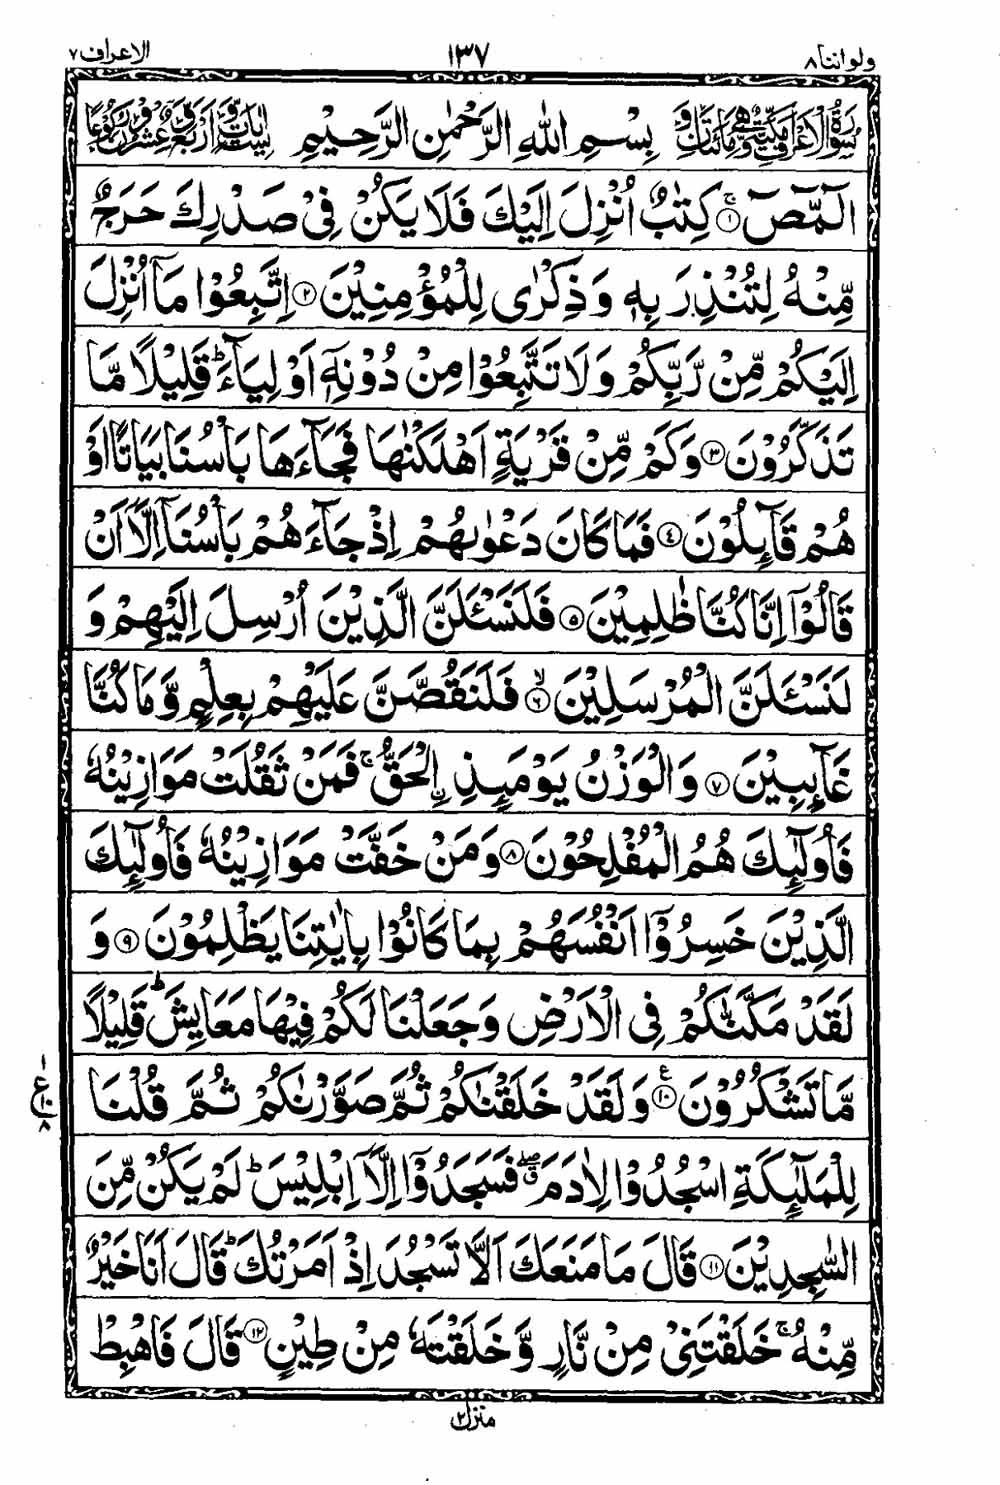 ولواننا ٨ ١٣٧ الاعراف ٧
سُوْرَةُ الْاَعْرَافِ مَكِّيَّةٌ وَّهِيَ مِائَتَانِ وَّ بِسْمِ اللّٰهِ الرَّحْمٰنِ الرَّحِيْمِ سِتُّ اٰيَاتٍ وَّاَرْبَعٌ وَّعِشْرُوْنَ رُكُوْعًا
الٓمّٓصٓ ۚ‏﴿۱﴾ كِتٰبٌ اُنْزِلَ اِلَيْكَ فَلَا يَكُنْ فِىْ صَدْرِكَ حَرَجٌ
مِّنْهُ لِتُنْذِرَ بِهٖ وَذِكْرٰى لِلْمُؤْمِنِيْنَ ﴿۲﴾ اِتَّبِعُوْا مَآ اُنْزِلَ
اِلَيْكُمْ مِّنْ رَّبِّكُمْ وَلَا تَتَّبِعُوْا مِنْ دُوْنِهٖٓ اَوْلِيَآءَ ؕ قَلِيْلًا مَّا
تَذَكَّرُوْنَ ﴿۳﴾ وَكَمْ مِّنْ قَرْيَةٍ اَهْلَكْنٰهَا فَجَآءَهَا بَاْسُنَا بَيَاتًا اَوْ
هُمْ قَآئِلُوْنَ ﴿۴﴾ فَمَا كَانَ دَعْوٰىهُمْ اِذْ جَآءَهُمْ بَاْسُنَآ اِلَّآ اَنْ
قَالُوْٓا اِنَّا كُنَّا ظٰلِمِيْنَ ﴿۵﴾ فَلَنَسْئَلَنَّ الَّذِيْنَ اُرْسِلَ اِلَيْهِمْ وَ
لَنَسْئَلَنَّ الْمُرْسَلِيْنَ ۙ﴿۶﴾ فَلَنَقُصَّنَّ عَلَيْهِمْ بِعِلْمٍ وَّمَا كُنَّا
غَآئِبِيْنَ ﴿۷﴾ وَالْوَزْنُ يَوْمَئِذِ ۨالْحَقُّ ۚ فَمَنْ ثَقُلَتْ مَوَازِيْنُهٗ
فَاُولٰٓئِكَ هُمُ الْمُفْلِحُوْنَ ﴿۸﴾ وَمَنْ خَفَّتْ مَوَازِيْنُهٗ فَاُولٰٓئِكَ
الَّذِيْنَ خَسِرُوْٓا اَنْفُسَهُمْ بِمَا كَانُوْا بِاٰيٰتِنَا يَظْلِمُوْنَ ﴿۹﴾ وَ
لَقَدْ مَكَّنّٰكُمْ فِى الْاَرْضِ وَجَعَلْنَا لَكُمْ فِيْهَا مَعَايِشَ ؕ قَلِيْلًا
مَّا تَشْكُرُوْنَ ﴿۱۰﴾ ع وَلَقَدْ خَلَقْنٰكُمْ ثُمَّ صَوَّرْنٰكُمْ ثُمَّ قُلْنَا
١ ع ١٠ ٨
لِلْمَلٰٓئِكَةِ اسْجُدُوْا لِاٰدَمَ ۖق فَسَجَدُوْٓا اِلَّآ اِبْلِيْسَ ؕ لَمْ يَكُنْ مِّنَ
السّٰجِدِيْنَ ﴿۱۱﴾ قَالَ مَا مَنَعَكَ اَلَّا تَسْجُدَ اِذْ اَمَرْتُكَ ؕ قَالَ اَنَا خَيْرٌ
مِّنْهُ ۚ خَلَقْتَنِىْ مِنْ نَّارٍ وَّخَلَقْتَهٗ مِنْ طِيْنٍ ﴿۱۲﴾ قَالَ فَاهْبِطْ
منزل ٢